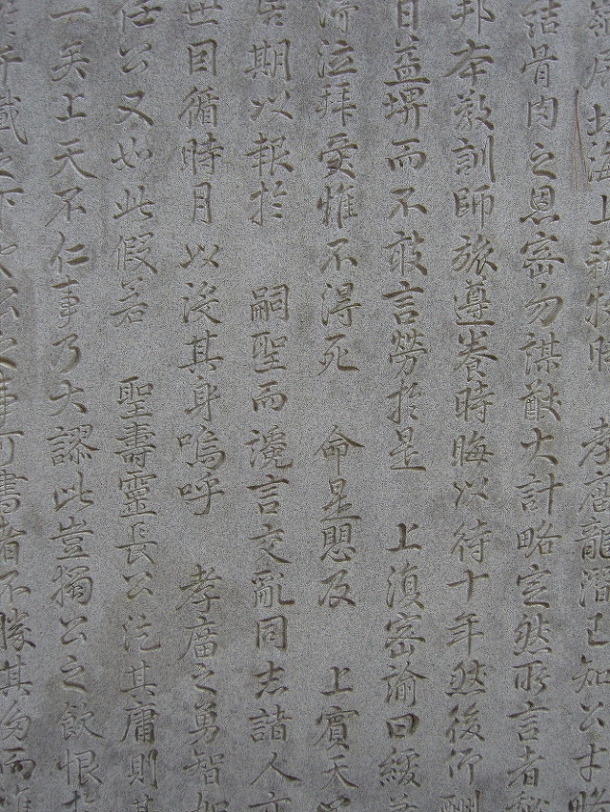 居北海上移拜時 孝廟龍潛已知公才略
結骨肉之恩密勿謀猷大計略定然所言者
邦本教訓師旅遵養時晦以待十年然後仰
日益堪而不敢言勞於是 上滇密諭曰緩
泣拜受惟不得死 命是愳及 上賓天
期以報於 嗣聖而讒言交亂同志諸人
世因循時月以沒其身嗚呼 孝廟之勇智如
任公又如此假若 聖壽靈長公訖其庸則其
一矣上天不仁事乃大謬此豈獨公之飲恨於
千載之下 公之事可書者不勝其勿而